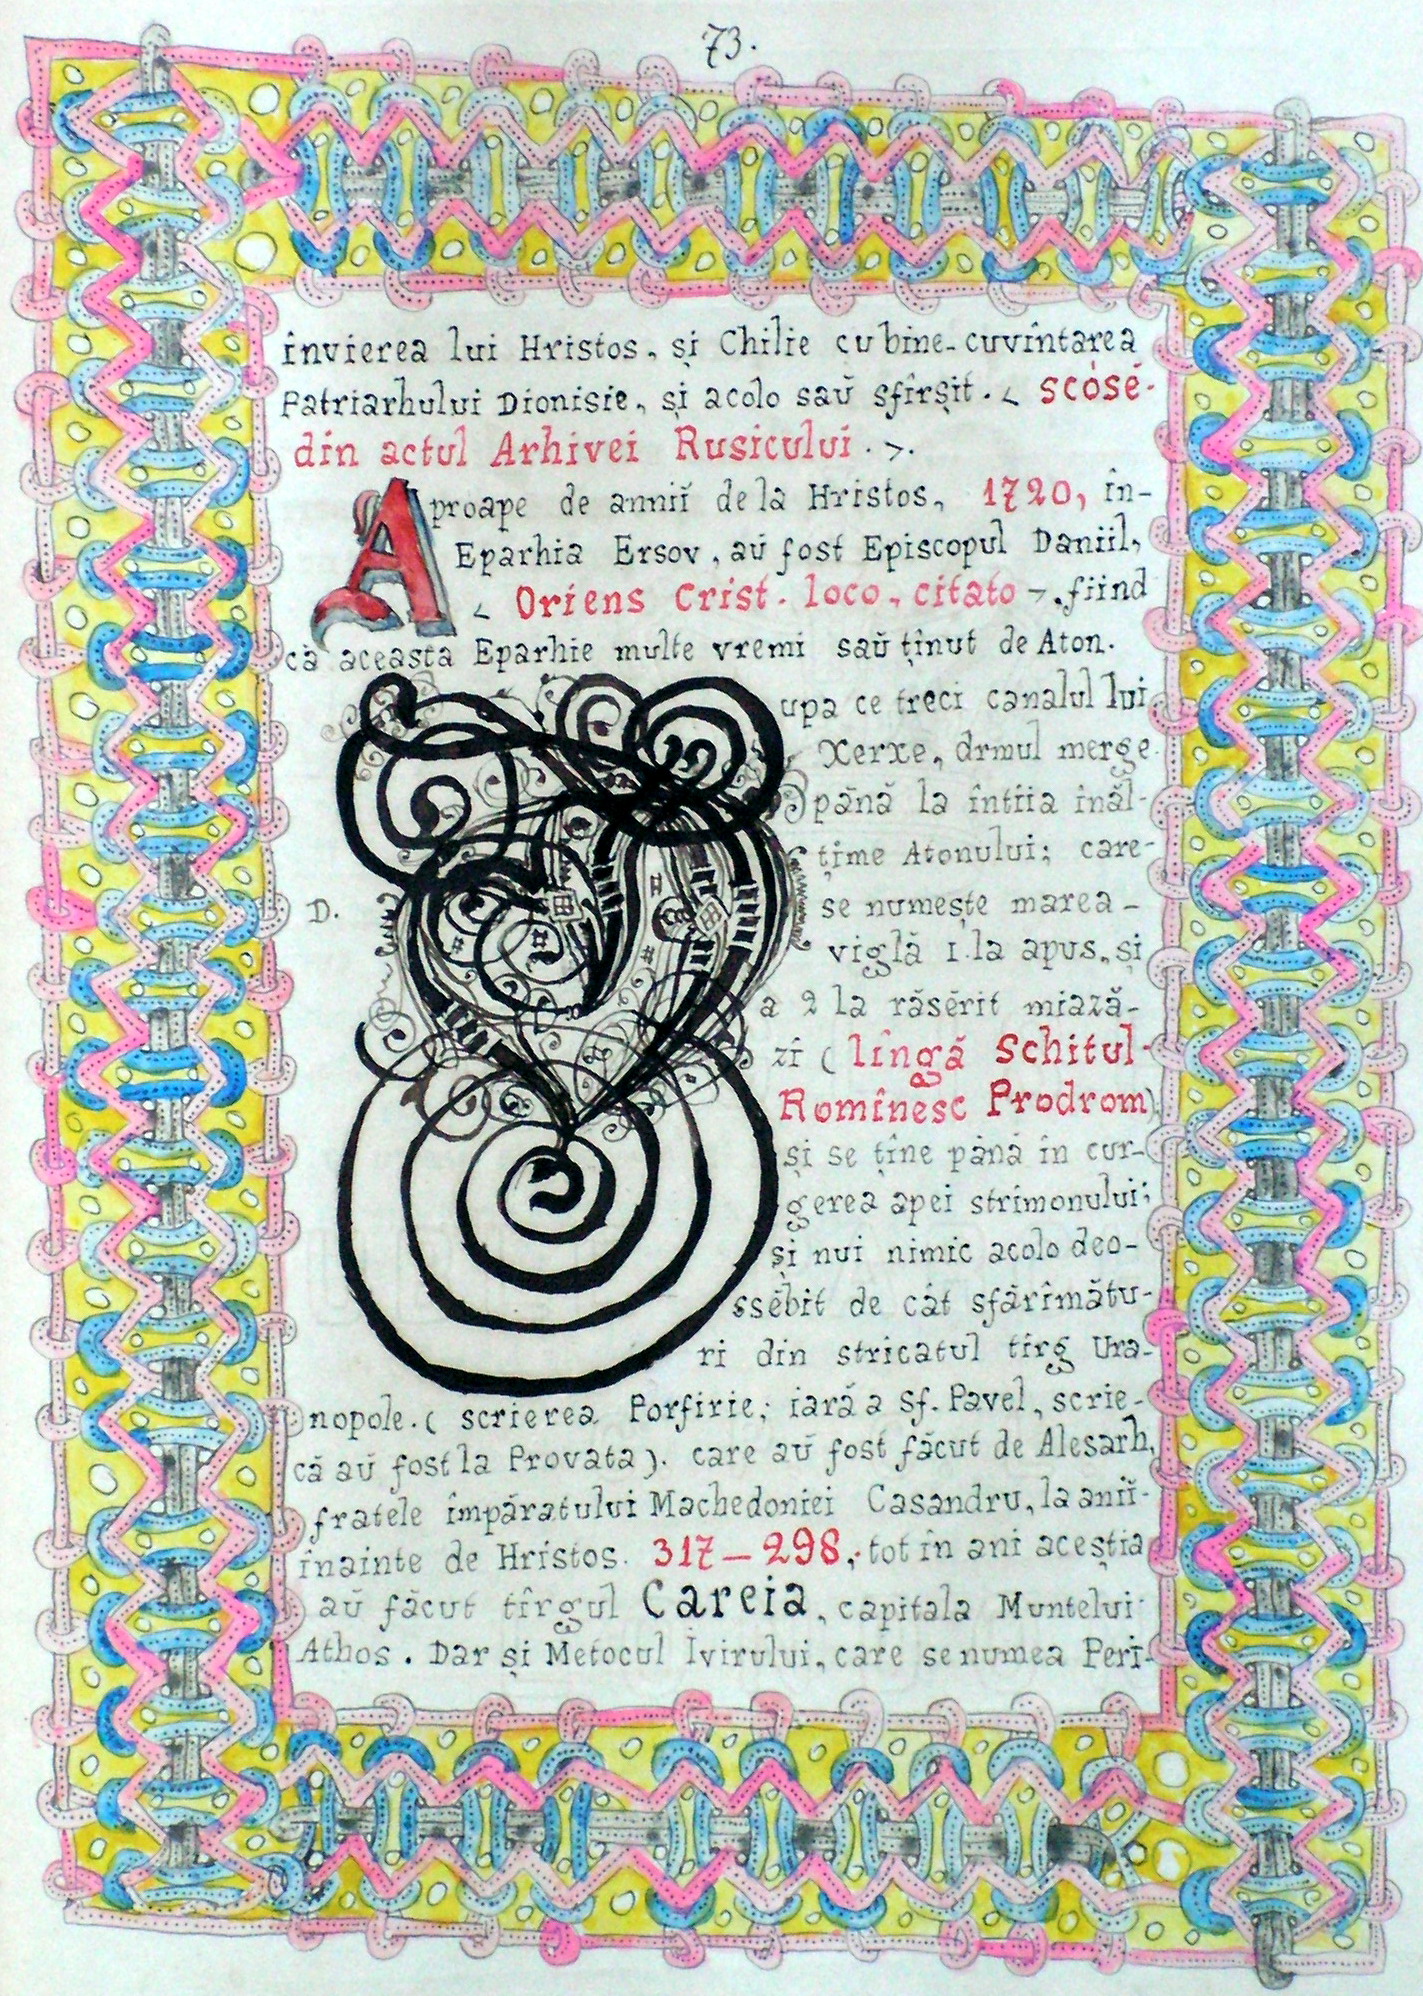 73.
învierea lui Hristos, și Chilie cu bine-cuvîntarea
Patriarhului Dionisie, și acolo saŭ sfîrșit. < scòsĕ-
din actul Arhivei Rusicului. >.
Aproape de annĭĭ de la Hristos, 1720, în-
Eparhia Ersov, aŭ fost Episcopul Daniil,
< Oriens Crist. loco, citato >, fiind
că aceasta Eparhie multe vremi saŭ ținut de Aton.
D.
upa ce treci canalul lui
Xerxe, drmul merge
până la întîia înăl-
țime Atonului; care-
se numește marea-
viglă 1 la apus, și
a 2 la răsĕrit miază-
zi ( lîngă Schitul-
Romînesc Prodrom)
și se ține până în cur-
gerea apei strimonului;
și nui nimic acolo deo-
ssĕbit de cât sfărîmătu-
ri din stricatul tîrg Ura-
nopole. ( scrierea Porfirie; iară a Sf. Pavel, scrie-
că aŭ fost la Provata ). care aŭ fost făcut de Alesarh,
fratele împăratului Machedoniei Casandru, la aniĭ-
înainte de Hristos. 317 – 298, tot în ani aceștia
aŭ făcut tîrgul Careia, capitala Muntelui
Athos. Dar și Metocul Ivirului, care se numea Peri-